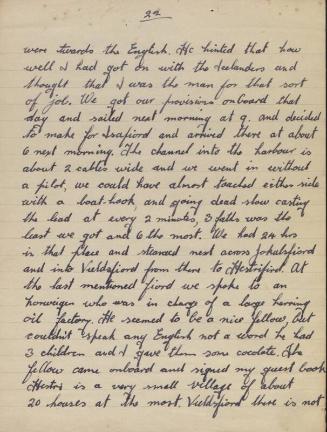 22
were towards the English. He hinted that how
well I had got on with the Icelanders and
thought that I was the man for that sort
of job. We got our provisions onboard that
day and sailed next morning at 9. and decided
to make for Isafiord and arrived there at about
6 next morning. The channel into the harbour is
about 2 cables wide and we went in without
a pilot, we could have almost touched either side
with a boat-hook, and going dead slow casting
the lead at every 2 minutes, 3 fathoms was the
least we got and 6 the most. We had 24 hrs
in that place and steamed next across Jokulsfiord
and into from there to At
the last mentioned fiord we spoke to an
norweigen who was in charge of a large herring
oil factory. He seemed to be a nice fellow, but
couldn't speak any English not a word he had
3 children and I gave them some cocolete. The
fellow came onboard and signed my guest book
is a very small village of about
20 houses at the most. there is not